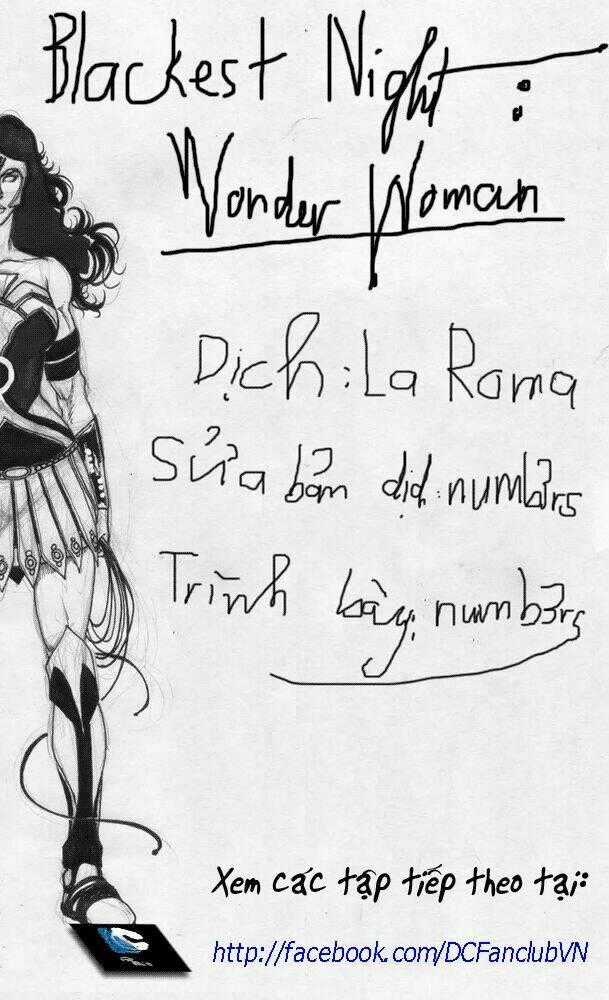 Blackest Night :
Wonder Woman
Dịch : La Roma
Sửa bản dịch : numb3rs
Trình bày : numb3rs
Xem các tập tiếp theo tại:
http://facebook.com/DCFanclubVN